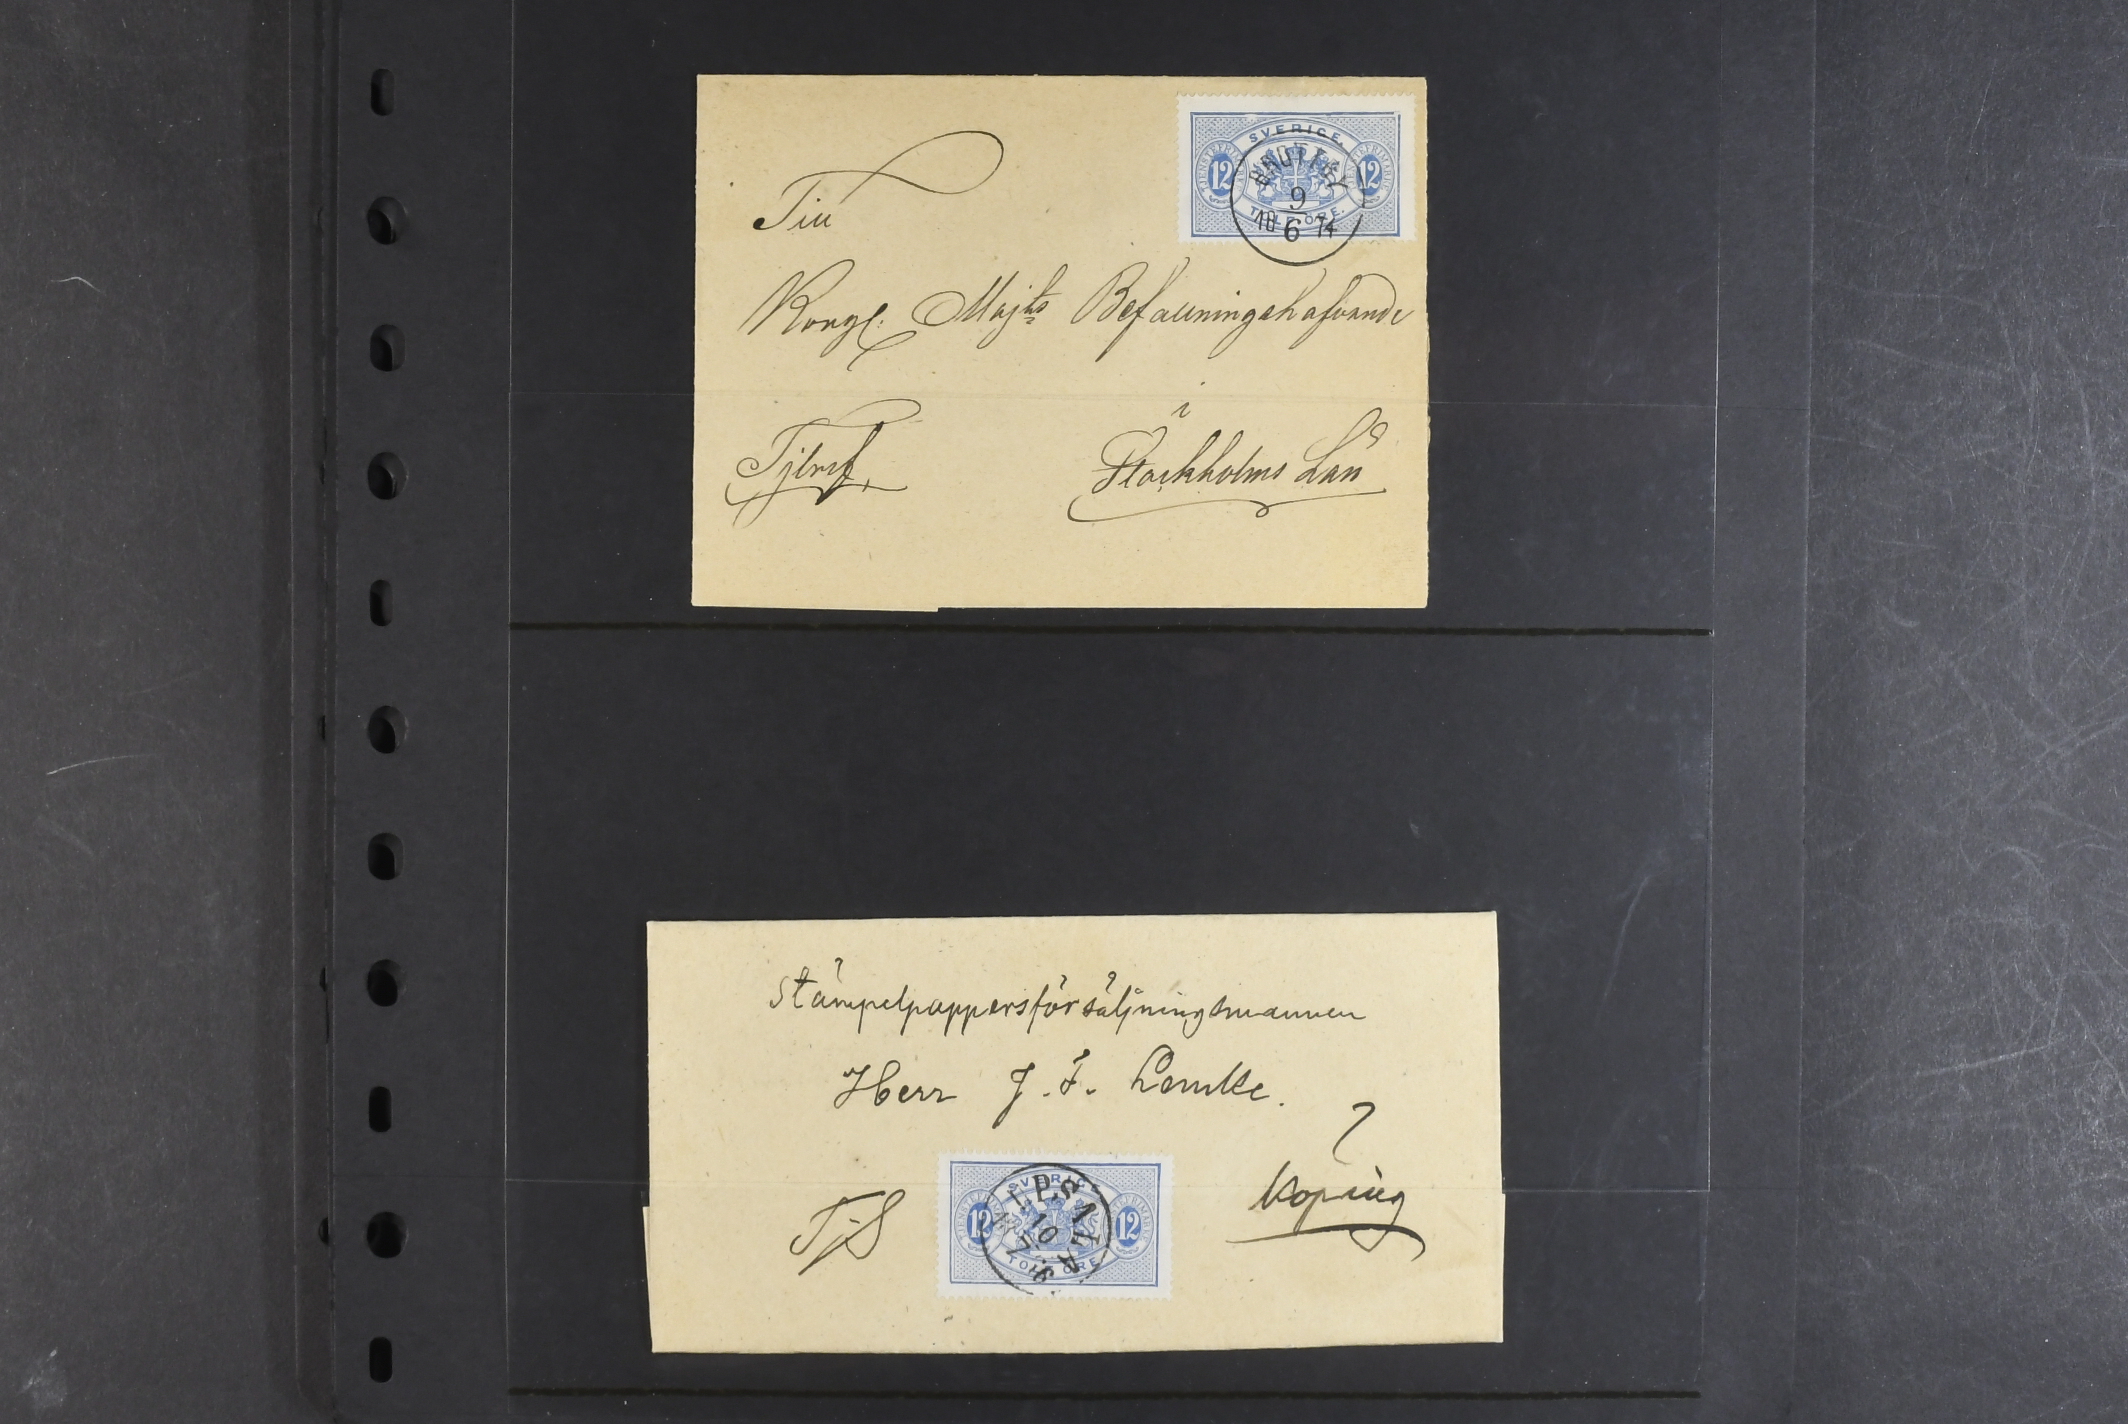 SVERIGE
12 12
TOLF ÖRE.
9
18 6 74
Till
Kongl: Maj:ts Befallningshafvande
i
Tjbref, Stockholms Län
Stämpelpappersförsäljningsmannen
Herr J. F. Lemke.
Köping
TjS
SVERIGE
12 12
TOLF ÖRE
UPSALA
10